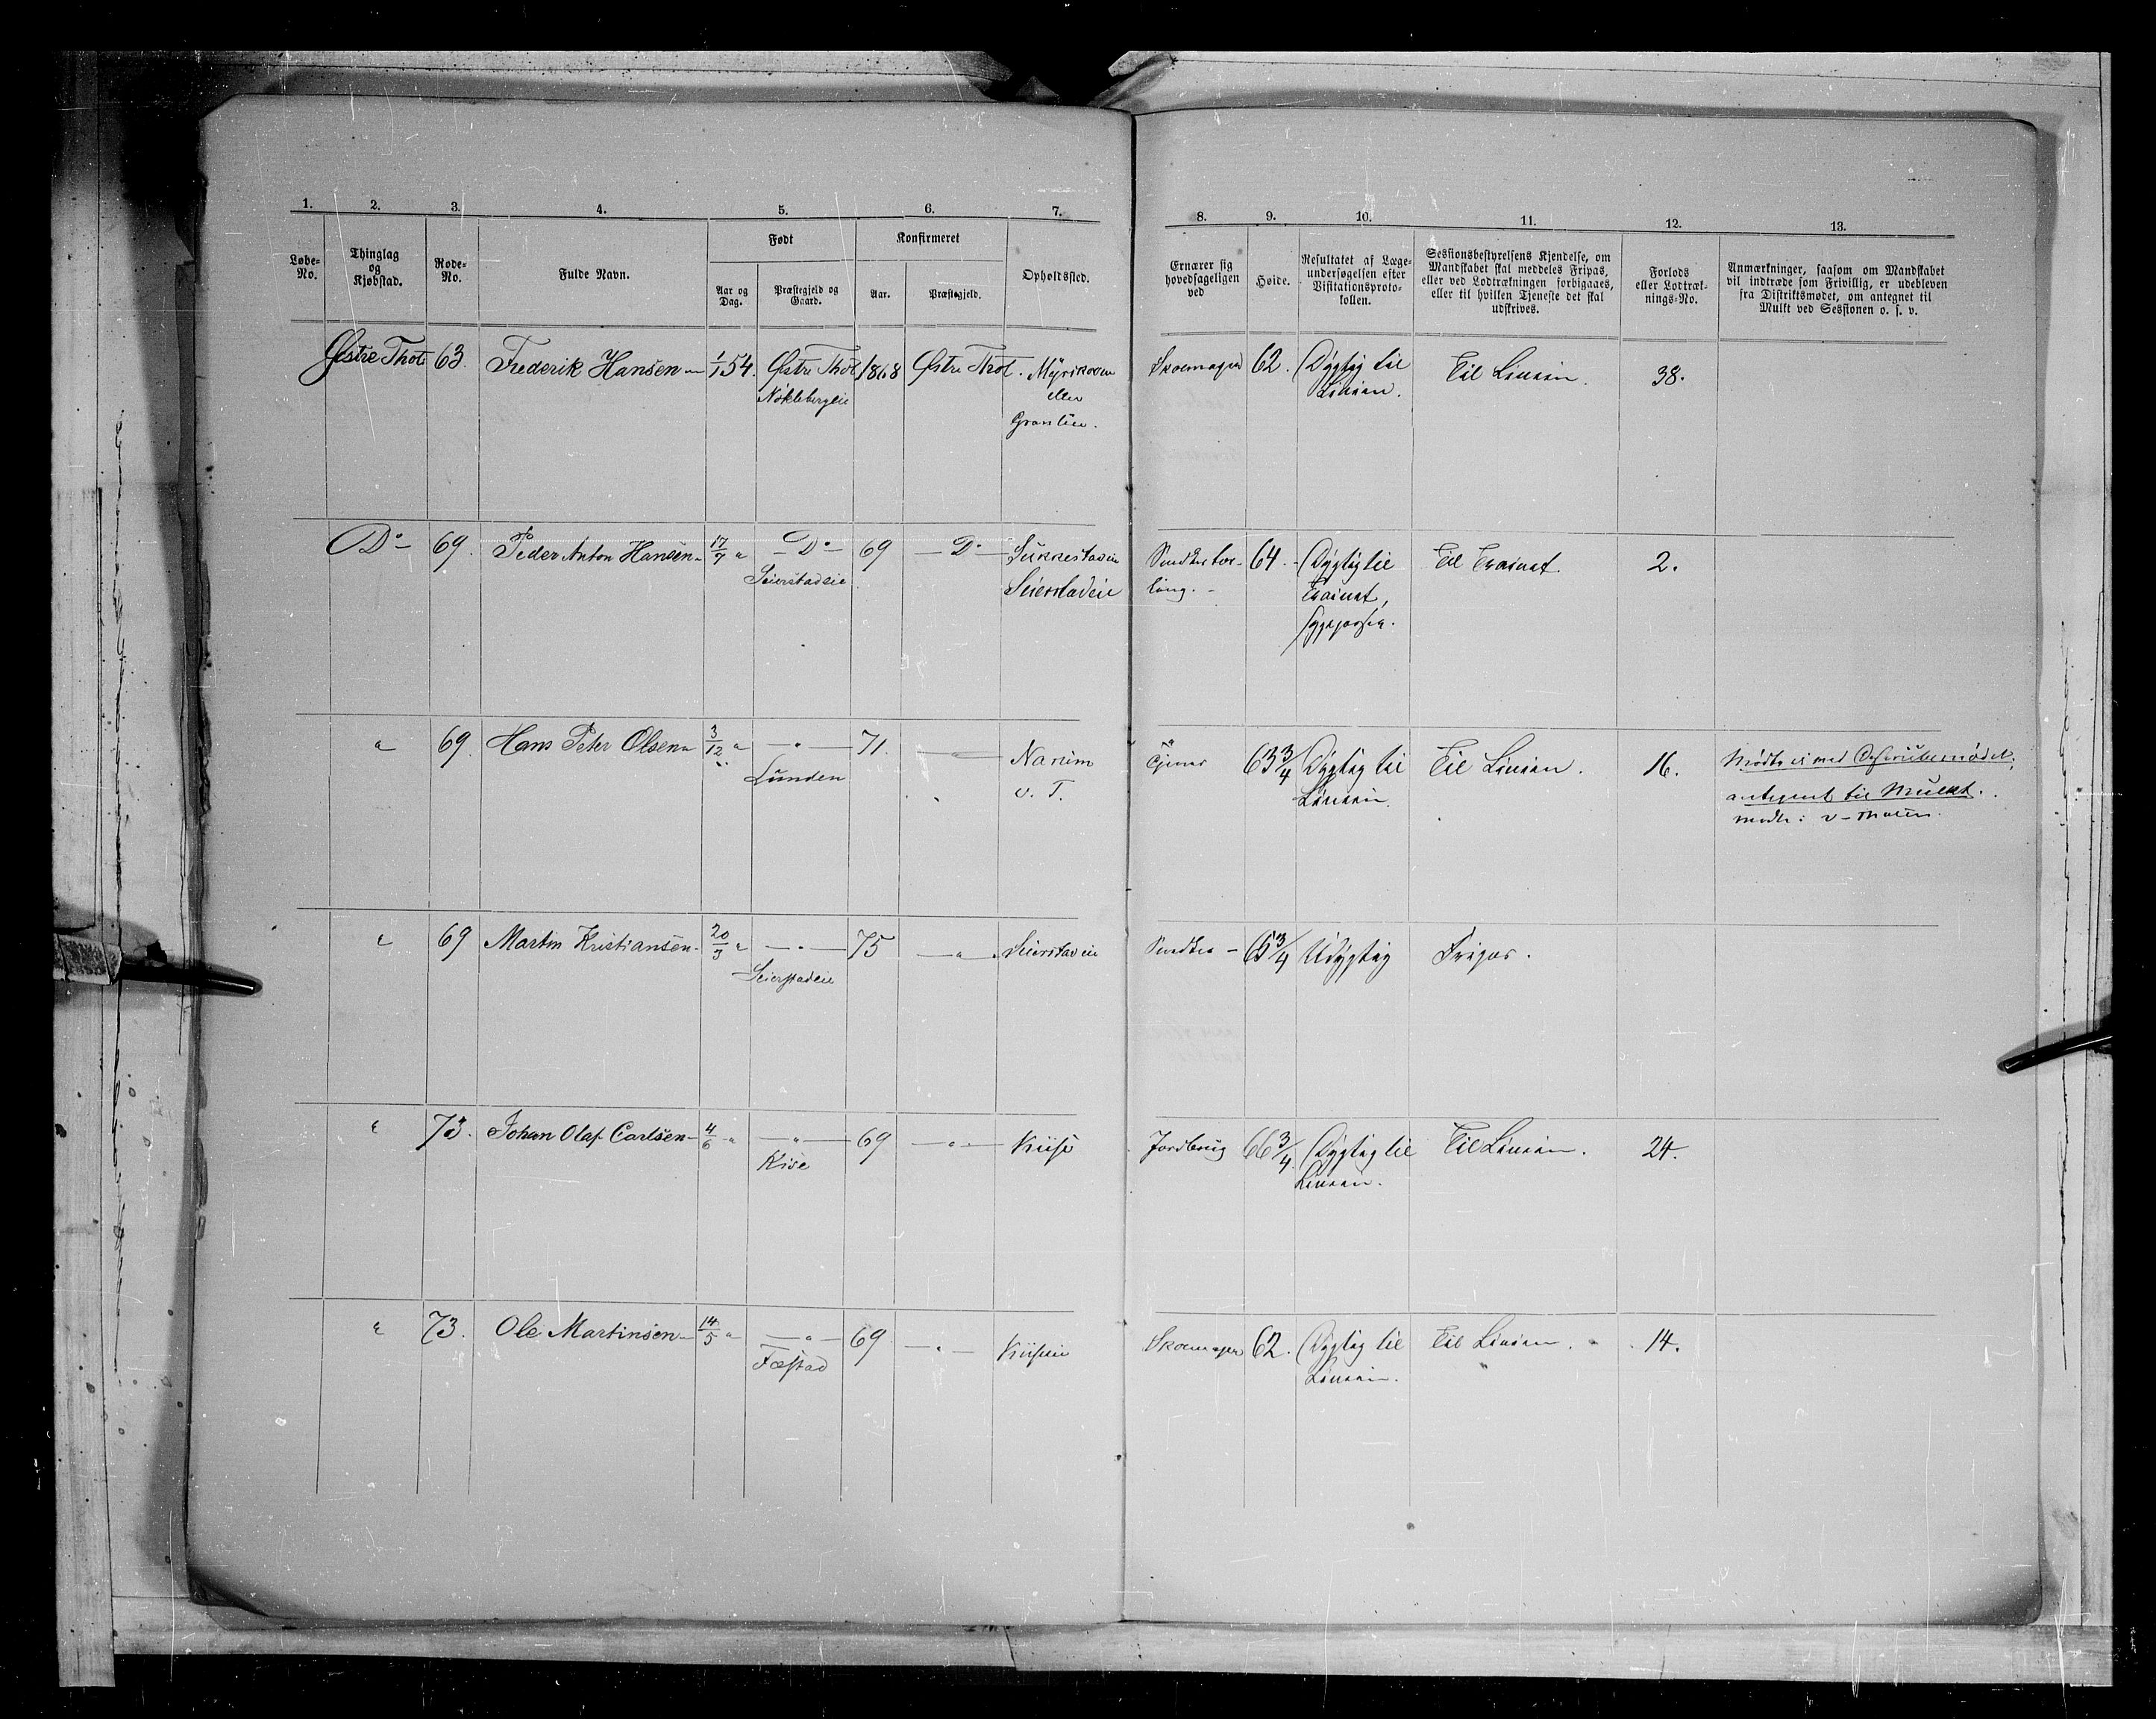 1. 2. 3. 4. 5. 6. 7.
Løbe-No. Thinglag og Kjøbstad. Rode-No. Fulde Navn. Født Konfirmeret Opholdssted.
Aar og Dag. Præstegjeld og Gaard. Aar. Præstegjeld.
8. 9. 10. 11. 12. 13.
Ernærer sig hovedsageligen ved
Høide.
Resultatet af Læge-
undersøgelsen efter
Visitationsproto-
kollen.
Sessionsbestyrelsens Kjendelse, om
Mandskabet skal meddeles Fripas,
eller ved Lodtrækningen forbigaaes,
eller til hvilken Tjeneste det skal
udskrives.
Forlods
eller Lodtræk-
nings-No.
Anmærkninger, saasom om Mandskabet
vil indtræde som Frivillig, er udebleven
fra Distriktsmødet, om antegnet til
Mulkt ved Sessionen o. s. v.
Østre Thot 63. Frederik Hansen 1/1 54. Østre Thot 1868 Østre Thot.
Nøklebergeie eller
Skoemager 62. Dygtig til Til Linien. 38.
Linien.
Do 69. Peder Anton Hansen 17/7 " Do 69 Do
Seierstadeie Seierstadeie
64. Dygtig til Til Trainet. 2.
Trainet,
" 69. Hans Peter Olsen 3/12 " " 71. " Narum
Lunden v. T.
Tjener 63 3/4 Dygtig til Til Linien. 16. Mødte ei ved
Linien. antegnet til Mulkt.
" 69 Martin Kristiansen 20/3 " " 75 " Seierstadeie
Seierstadeie
Snedker 65 3/4 Udygtig Fripas.
" 73. Johan Olaf Carlsen 4/6 " " 69 " Kiise
Kise
Jordbrug 66 3/4 Dygtig til Til Linien. 24.
Linien.
" 73. Ole Martinsen 14/5 " " 69 " Kiiseie
Fæstad
Skoemager 62. Dygtig til Til Linien. 14.
Linien.